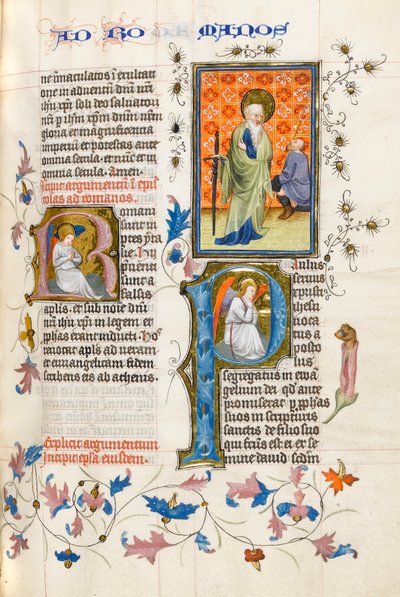 AD RO DE MANOS
ne imaculatos ī exultati
one in adventū dnī nrī
ihū xpī soli deo salvatorī
nrō p ihm xpm dnm nrm
gloria et magnificentia
imperiū et potestas ante
omnia secula et nūc et in
omnia secula. Amen.
Incipit argumentū ī epis
tolas ad romanos.
Romani
sunt in
ptes yta
lie. Hii
pvenūt
sunt a
falsis
aplis. et sub noīe dnī
nrī ihū xpī in legem et
pphas erant inducti. hos
revocat apls ad veram
et evangelicam fidem
scribens eis ab athenis.
Explicit argumentum
Incipit epīsa eiusdem.
Paulus
servus
xpī ihū
vocat
us a
posto
lus
segregatus in evā
gelium dei qd ante
promiserat p pphas
suos in scripturis
sanctis de filio suo
qui factus est ei ex se
mine david scdm